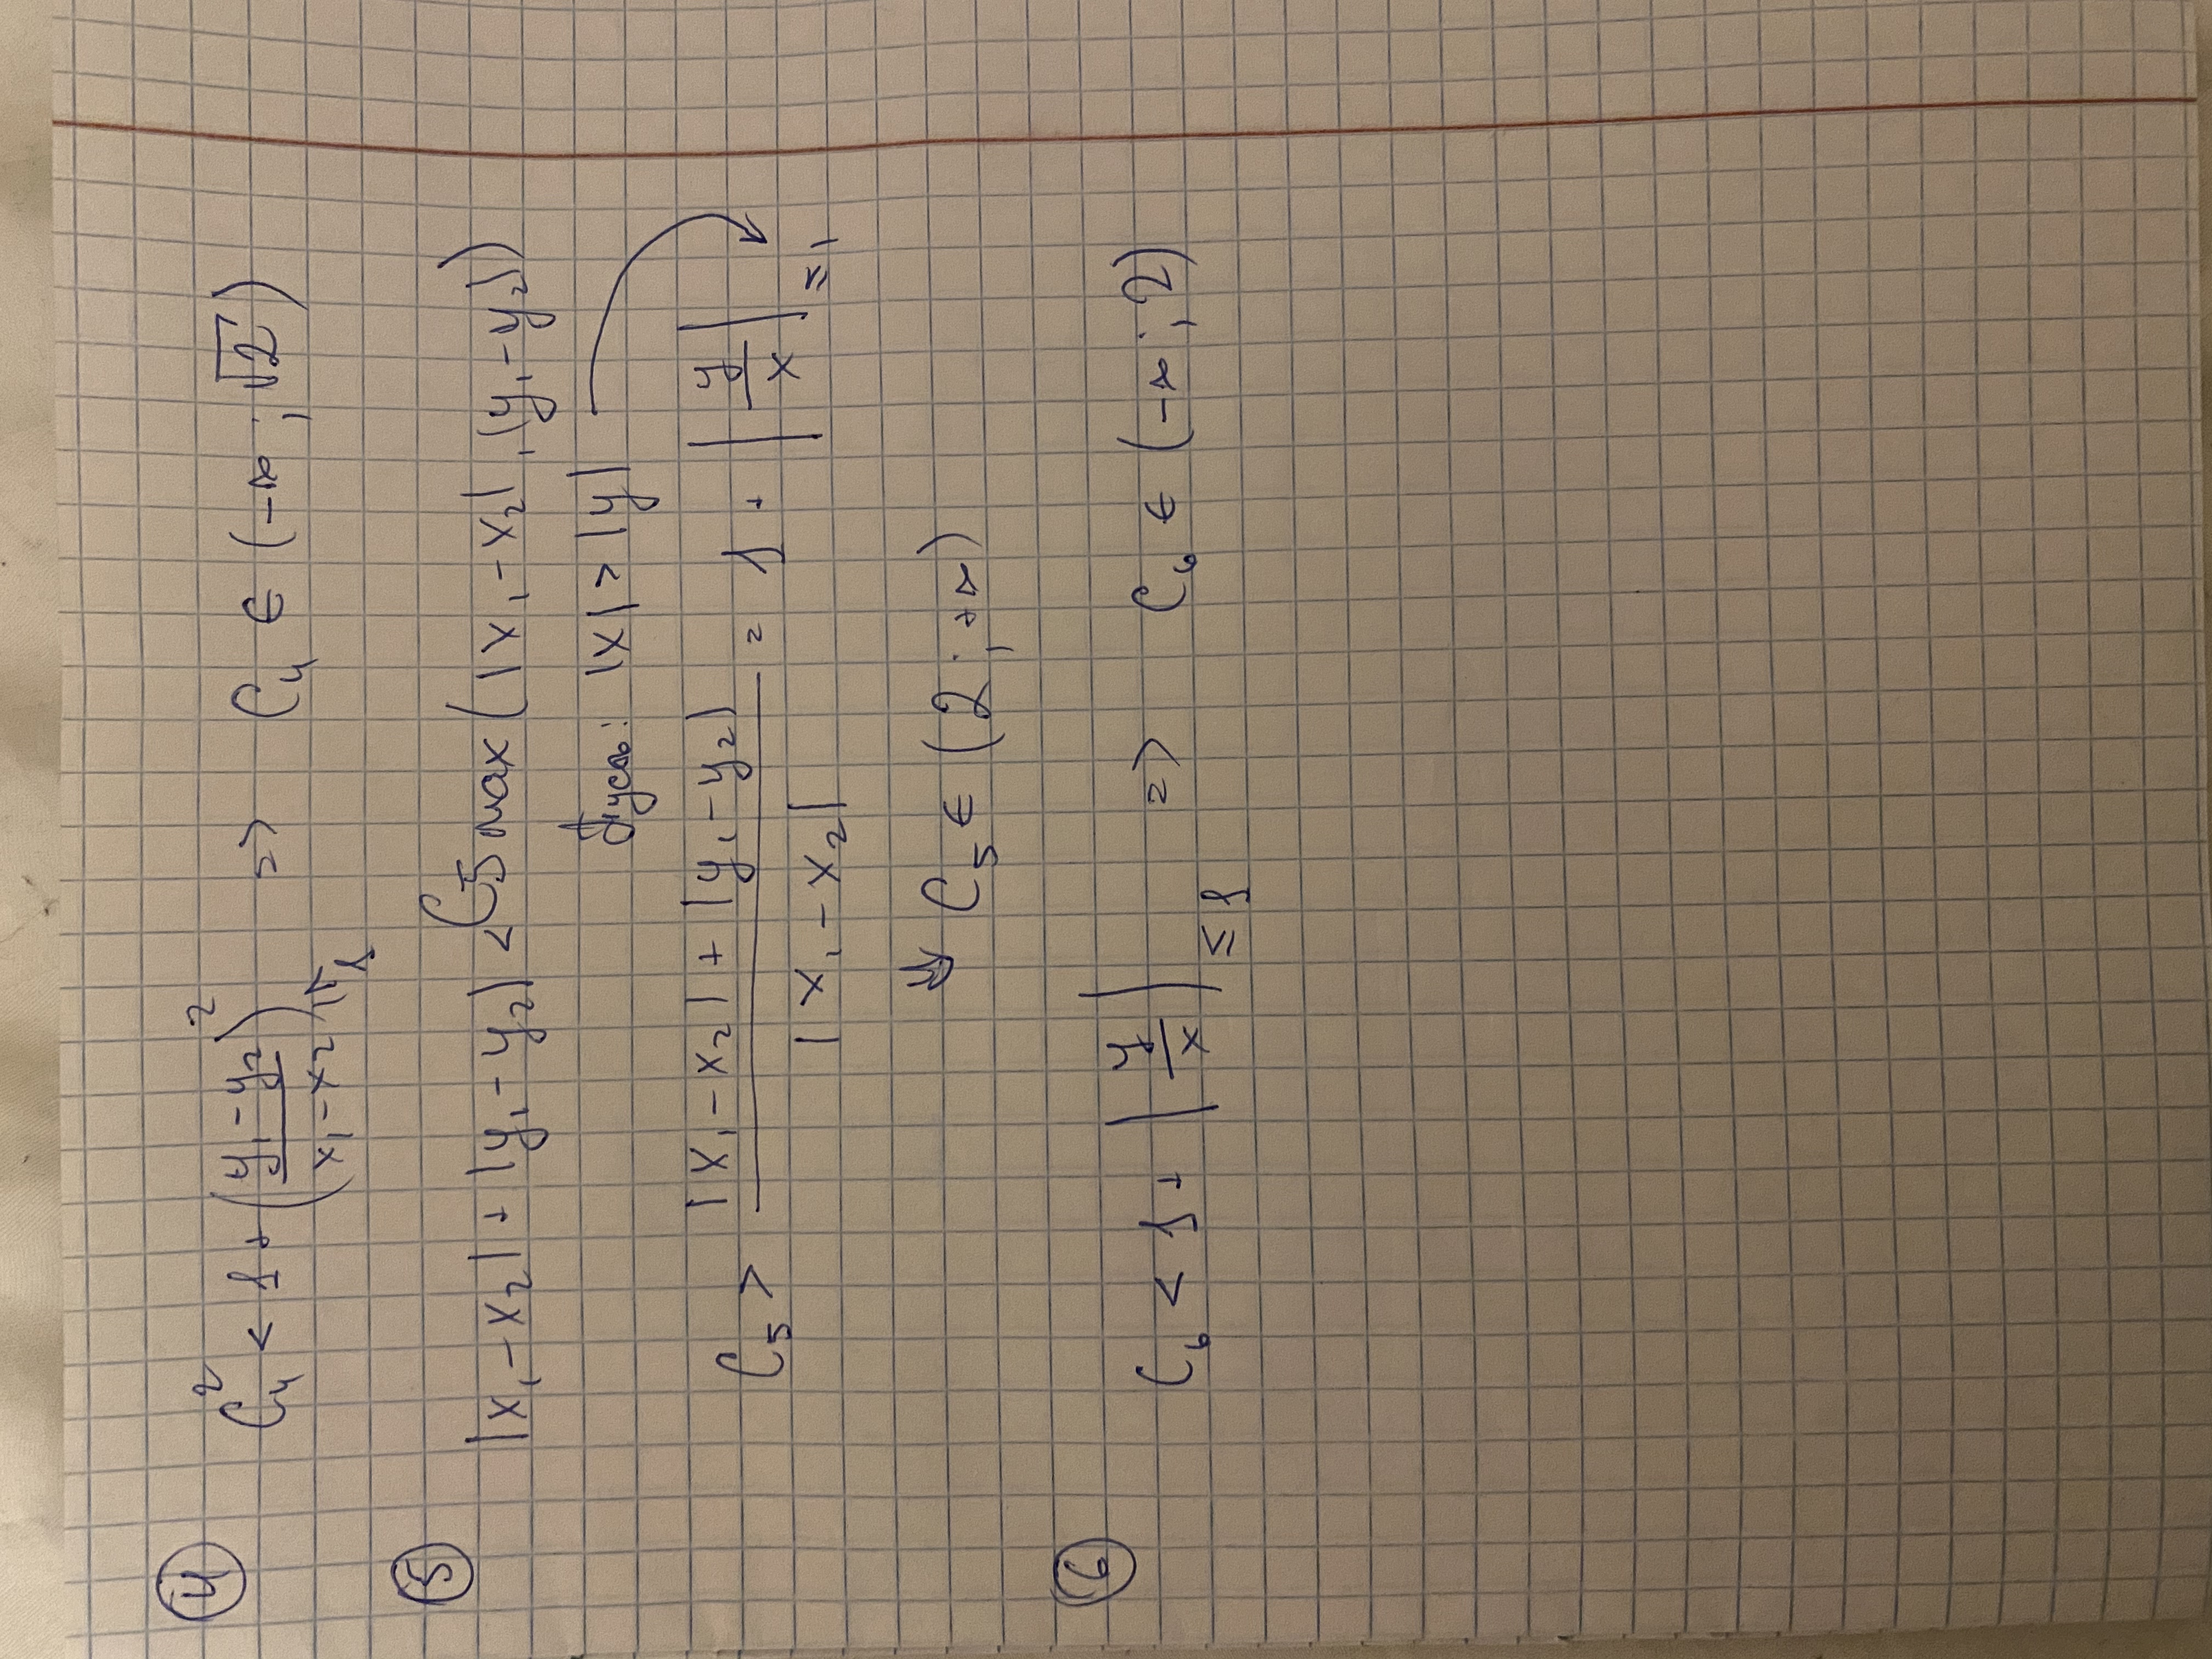 ④ C₄² < 1 + ((y₁ - y₂)/(x₁ - x₂))² ≤ 1 => C₄ ∈ (-∞ ; √2)
⑤
|x₁ - x₂| + |y₁ - y₂| < C₅ max(|x₁ - x₂|, |y₁ - y₂|)
Пусть: |x| > |y|
C₅ > (|x₁ - x₂| + |y₁ - y₂|)/|x₁ - x₂| = 1 + |y/x| ≤ 1
⇓ C₅ ∈ (2 ; +∞)
⑥
C₆ < 1 + |y/x| ≤ 1 => C₆ ∈ (-∞ ; 2)